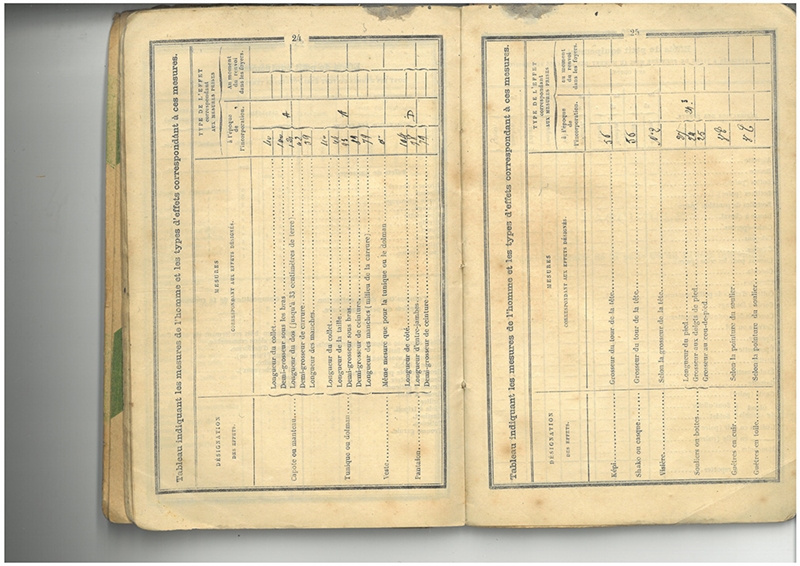 24
Tableau indiquant les mesures de l'homme et les types d'effets correspondant à ces mesures.
DÉSIGNATION
DES EFFETS.
MESURES
CORRESPONDANT AUX EFFETS DÉSIGNÉS.
TYPE DE L'EFFET
correspondant
AUX MESURES PRISES
à l'époque
de
l'incorporation.
Au moment
du renvoi
dans les foyers.
Capote ou manteau
Longueur du collet
Demi-grosseur sous les bras
Longueur du dos (jusqu'à 33 centimètres de terre)
Demi-grosseur de carrure
Longueur des manches
Tunique ou dolman
Longueur du collet
Longueur de la taille
Demi-grosseur sous bras
Demi-grosseur de ceinture
Longueur des manches (milieu de la carrure)
Veste
Même mesure que pour la tunique ou le dolman
Pantalon
Longueur de côté
Longueur d'entre-jambes
Demi-grosseur de ceinture
25
Tableau indiquant les mesures de l'homme et les types d'effets correspondant à ces mesures.
DÉSIGNATION
DES EFFETS.
MESURES
CORRESPONDANT AUX EFFETS DÉSIGNÉS.
TYPE DE L'EFFET
correspondant
AUX MESURES PRISES
à l'époque
de
l'incorporation.
au moment
du renvoi
dans les foyers.
Képi Grosseur du tour de la tête 56
Shako ou casque Grosseur du tour de la tête 56
Visière Selon la grosseur de la tête
Souliers ou bottes
Longueur du pied
Grosseur aux doigts de pied
Grosseur au cou-de-pied
Guêtres en cuir Selon la pointure du soulier
Guêtres en toile Selon la pointure du soulier